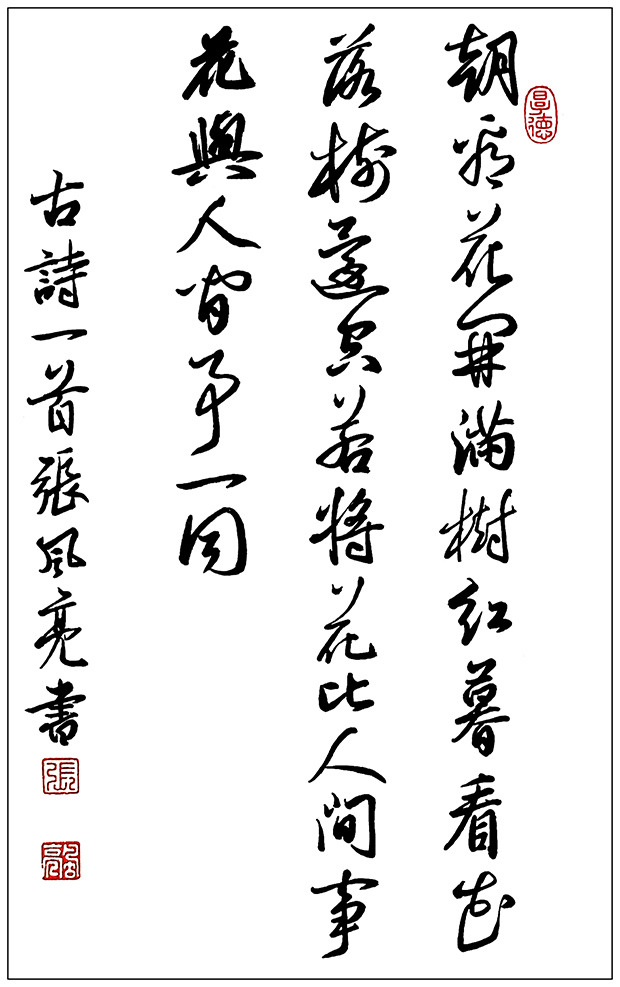 朝看花開滿樹紅暮看花
落樹還空若將花比人間事
花與人間事一同
古詩一首張風亮書
厚德
張